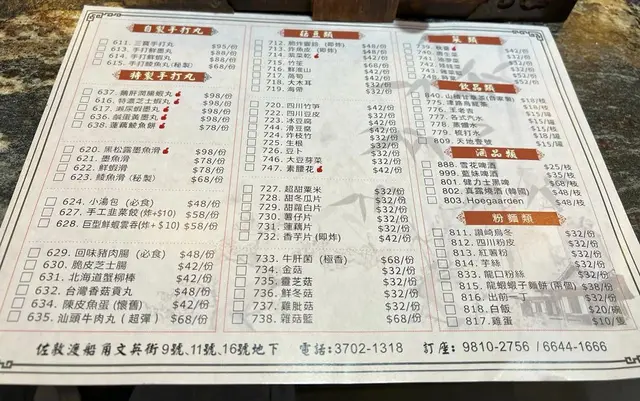 自製手打丸
611. 三寶手打丸 $95/份
613. 手打鮮墨丸 $88/份
614. 手打鮮蝦丸 $88/份
615. 手打鯪魚丸(秘製) $68/份
特製手打丸
637. 鵝肝潤腸蝦丸 $98/份
616. 特濃芝士蝦丸 $98/份
617. 瀨尿蝦墨丸 $98/份
636. 鹹蛋黃墨丸 $98/份
638. 蓮藕鯪魚餅 $78/份
620. 黑松露墨魚滑 $98/份
621. 墨魚滑 $78/份
622. 鮮蝦滑 $78/份
623. 鯪魚滑 (秘製) $68/份
624. 小湯包 (必食) $48/份
627. 手工韭菜餃 (炸+$10) $58/份
628. 巨型鮮蝦雲吞 (炸+$10) $58/份
629. 回味豬肉腸 (必食) $48/份
630. 脆皮芝士腸 $42/份
631. 北海道蟹柳棒 $42/份
632. 台灣香菇貢丸 $48/份
634. 陳皮魚蛋 (懷舊) $42/份
635. 汕頭牛肉丸 (超彈) $68/份
菇豆類
712. 脆炸響鈴 (即炸) $48/份
713. 炸魚皮 (即炸)
714. 紫菜
715. 竹笙
716. 鮮淮山
717. 萵筍
718. 大木耳
719. 海帶 $32/份
720. 四川竹笋 $42/份
722. 四川豆皮 $32/份
723. 冰豆腐 $32/份
744. 滑豆腐 $32/份
724. 炸枝竹 $32/份
725. 生根 $32/份
726. 豆卜 $32/份
746. 大豆芽菜 $32/份
747. 素腰花 $42/份
727. 超甜粟米 $32/份
728. 甜冬瓜片 $32/份
729. 甜蘿白片 $32/份
730. 薯仔片 $32/份
731. 蓮藕片 $32/份
732. 香芋片 (即炸) $42/份
733. 牛肝菌 (極香) $68/份
734. 金菇 $32/份
735. 靈芝菇 $32/份
736. 鮮冬菇 $32/份
737. 雞肶菇 $32/份
738. 雜菇籃 $68/份
菜類
飲品類
840. $18/枝
775. $18/枝
776. 王老吉
777. 各式汽水
778.
779. 梳打水
809. 天地壹號
酒品類
829. 雪花啤酒 $25/枝
999. 藍妹啤酒 $35/枝
801. 健力士黑啤 $68/枝
802. 真露燒酒 (韓國) $48/枝
803. Hoegaarden $48/枝
粉麵類
811. 讚岐烏冬 $32/份
812. 四川粉皮 $32/份
813. 紅薯粉 $32/份
814. 芋絲 $32/份
833. 龍口粉絲 $32/份
815. 龍蝦蝦子麵餅 (兩個) $38/份
816. 出前一丁 $32/份
818. 白飯 $20/碗
817. 雞蛋 $10/隻
佐敦渡船角文英街9號、11號、16號地下 電話:3702-1318 訂座: 9810-2756 / 6644-1666